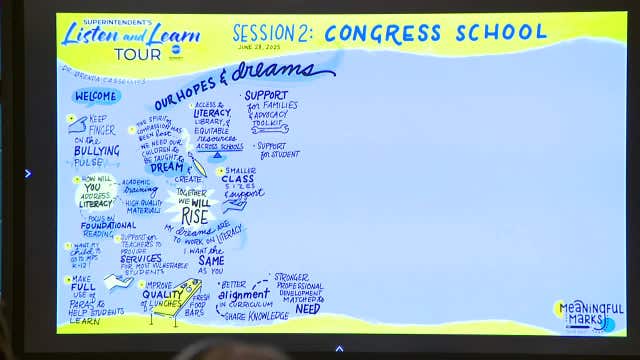 SUPERINTENDENT'S
Listen and Learn
TOUR
SESSION 2: CONGRESS SCHOOL
JUNE 28, 2025
DR. BRENDA CASSELLIUS
WELCOME
OUR HOPES & dreams
KEEP
FINGER
ON the
BULLYING
PULSE
THE SPIRIT of
COMPASSION HAS
BEEN lost
WE NEED OUR
CHILDREN to
BE TAUGHT to
DREAM &
CREATE
ACCESS to
LITERACY,
LIBRARY, &
EQUITABLE
resources
ACROSS SCHOOLS
SUPPORT
for FAMILIES
& ADVOCACY
TOOLKIT
SUPPORT
for STUDENT
HOW WILL
YOU
ADDRESS
LITERACY?
ACADEMIC
training
HIGH QUALITY
MATERIALS
FOCUS ON
FOUNDATIONAL
READING
TOGETHER
WE WILL
RISE
SMALLER
CLASS
SIZES
& support
MY dreams ARE
TO WORK ON LITERACY
I WANT the
SAME
AS YOU
I WANT MY
child to
GO to MPS
K-12!
SUPPORT for
TEACHERS to
PROVIDE
SERVICES
FOR MOST VULNERABLE
STUDENTS
MAKE
FULL
USE of
PARAS to
HELP STUDENTS
LEARN
IMPROVE
QUALITY
of LUNCHES
FRESH
FOOD
BARS
BETTER
alignment
IN CURRICULUM
SHARE KNOWLEDGE
STRONGER
PROFESSIONAL
DEVELOPMENT
MATCHED to
NEED
MEANINGFUL
MARKS